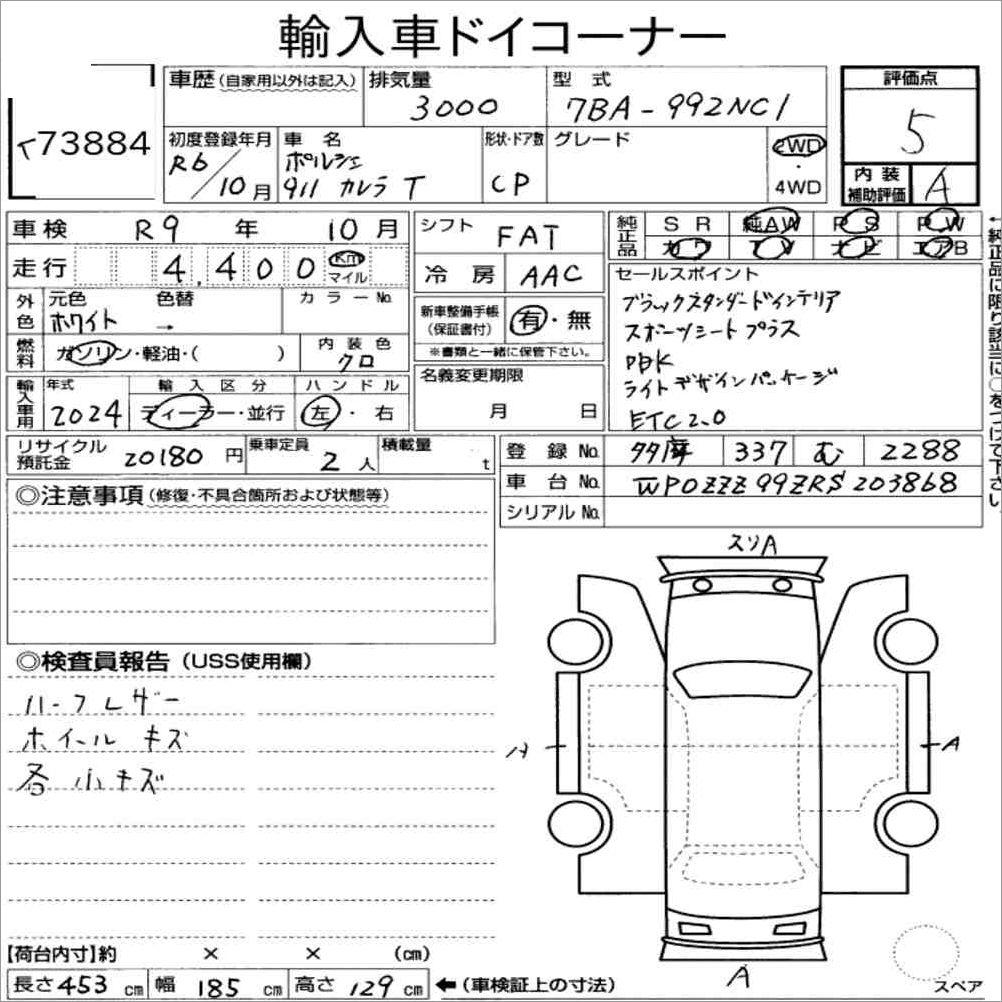 輸入車ドイコーナー
73884
車歴(自家用以外は記入)
排気量
3000
型式
7BA-992NC1
評価点
5
初度登録年月
R6/10月
車名
ポルシェ
911 カレラT
形状・ドア数
CP
グレード
2WD
・
4WD
内装
補助評価
A
車検 R9年 10月
シフト FAT
純正品 SR 純AW PS PW
カワ TV ナビ エアB
走行 4,400 Km マイル
冷房 AAC
セールスポイント
ブラックスタンダードインテリア
スポーツシートプラス
PBK
ライトデザインパッケージ
ETC2.0
外色 元色 色替 カラーNo.
ホワイト →
新車整備手帳
(保証書付)
有・無
※書類と一緒に保管下さい。
燃料 ガソリン・軽油・( )
内装色
クロ
名義変更期限
月 日
輸入車用
年式
2024
輸入区分
ディーラー・並行
ハンドル
左・右
リサイクル
預託金
20180円
乗車定員
2人
積載量
t
登録No. 多摩 337 む 2288
車台No. WP0ZZZ99ZRS203868
シリアルNo.
←純正品に限り該当に○をつけて下さい。
◎注意事項(修復・不具合箇所および状態等)
スリA
◎検査員報告(USS使用欄)
ハーフレザー
ホイールキズ
各小キズ
A
A
A
【荷台内寸】約 × × (cm)
長さ453cm 幅185cm 高さ129cm ←(車検証上の寸法)
スペア